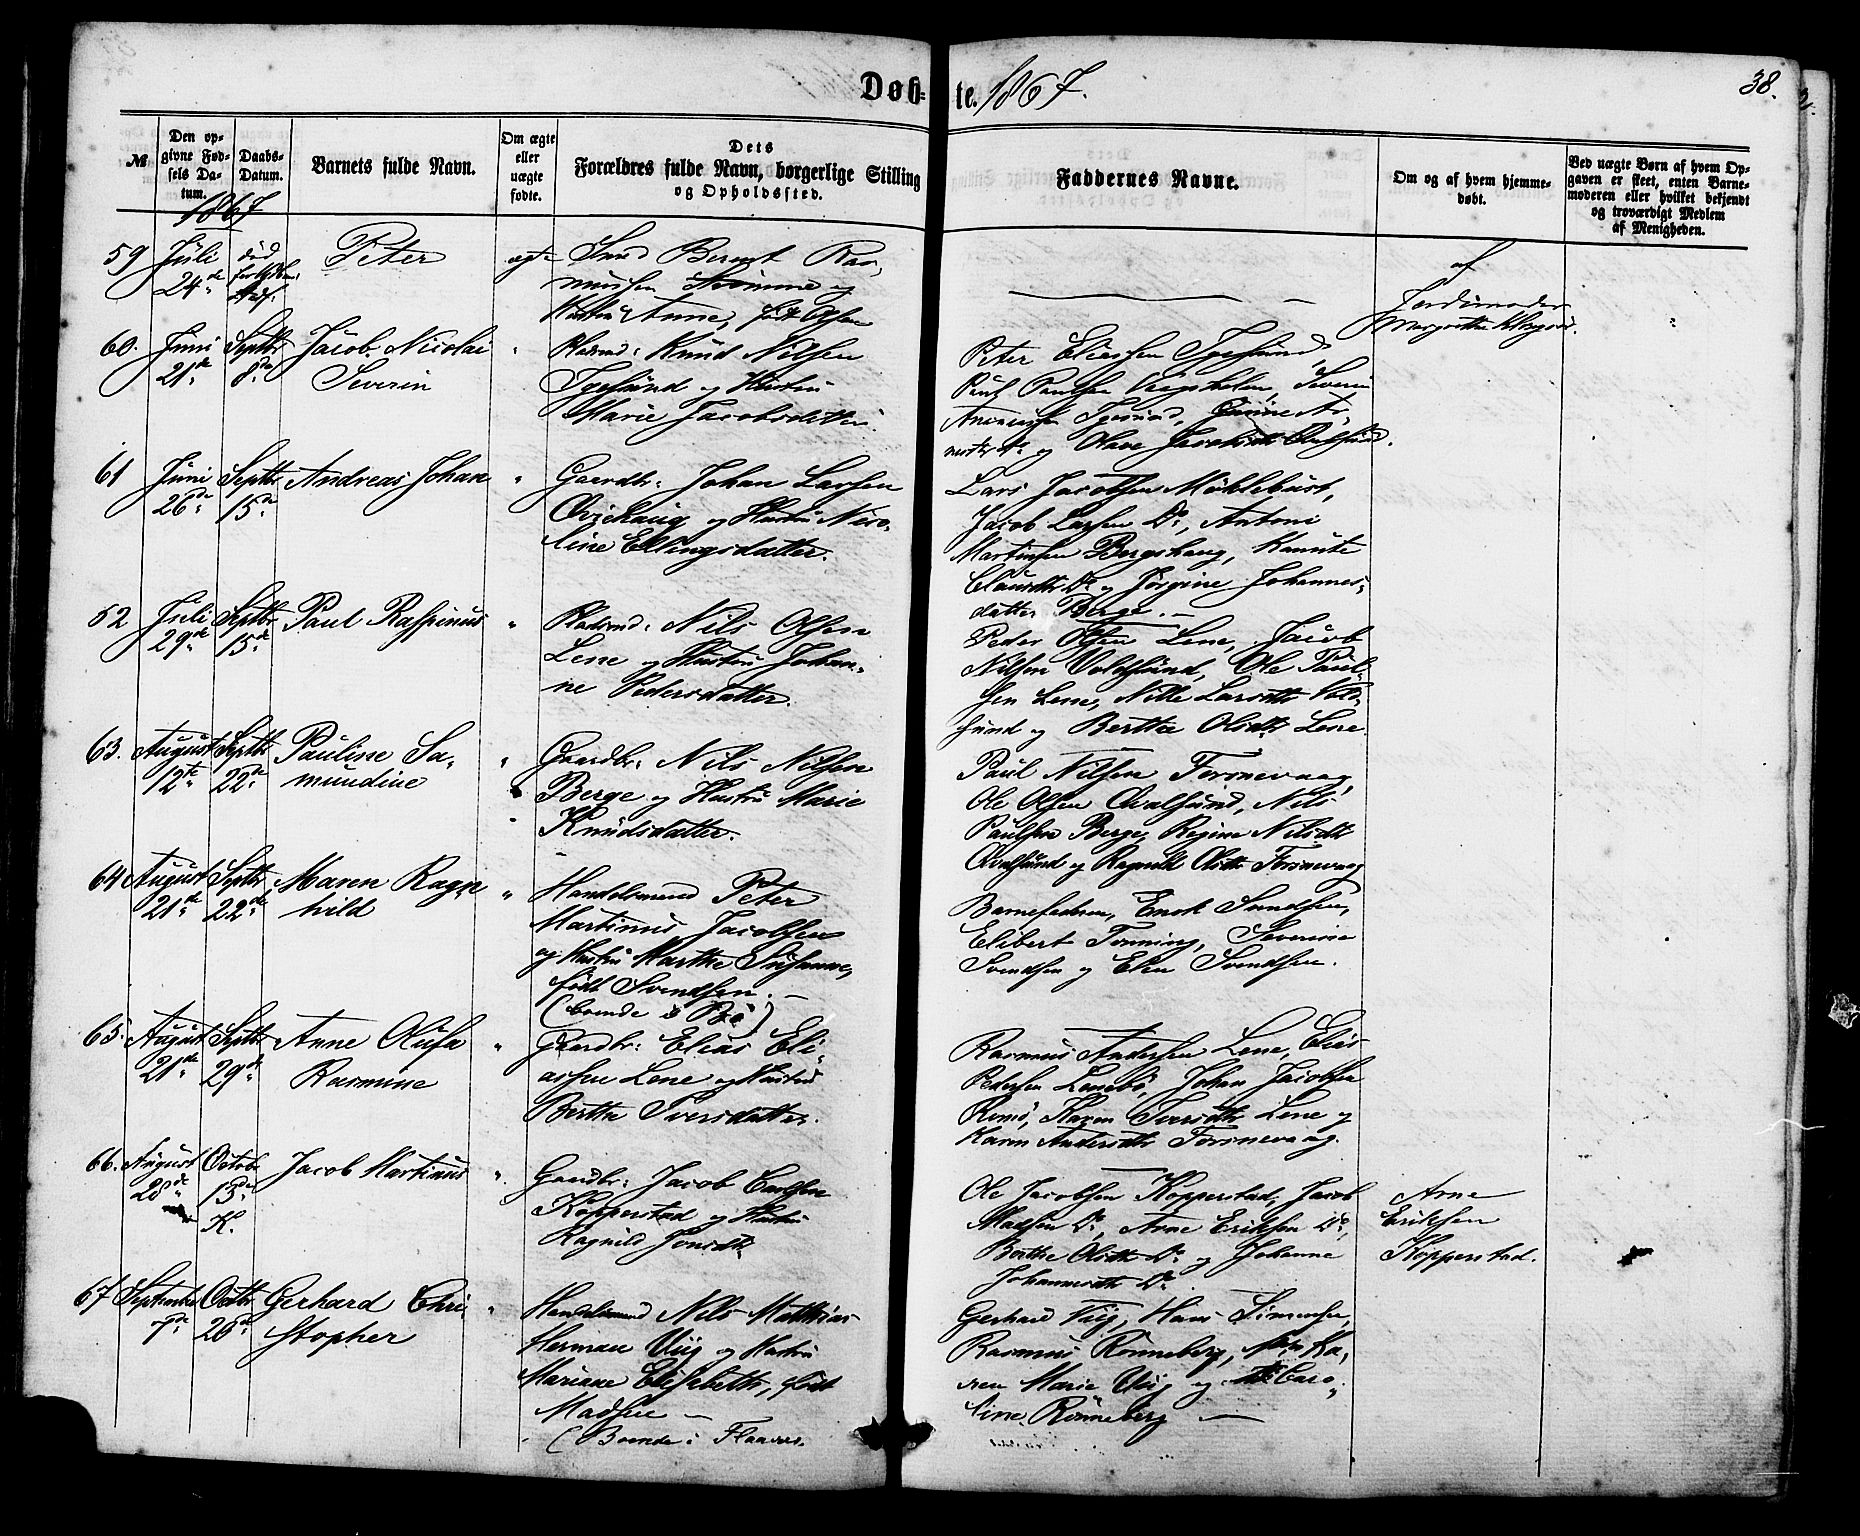 Døb-
te. 1867.
38.
№
Den op-
givne Fød-
sels Da-
tum.
Daabs-
Datum.
Barnets fulde Navn.
Om ægte
eller
uægte
fødte.
Dets
Forældres fulde Navn, borgerlige Stilling
og Opholdssted.
Faddernes Navne.
Om og af hvem hjemme-
døbt.
Ved uægte Børn af hvem Op-
gaven er skeet, enten Barne-
moderen eller hvilket bekjendt
og troværdigt Medlem
af Menigheden.
1867
59 Juli
24de
død
Peter
ægte
Bernt Ras-
mussen Strømme og
Hustru Anne, født Olsen
af
Jordemoder
Margrethe
60. Juni
21de
Septbr
8de
Jacob Nicolai
Severin
"
Pladsmd: Knud Nilsen
Igesund og Hustru
Marie Jacobsdatter.
Peter Eliassen Igesund,
Paul Paulsen Severin
Igesund,
og Olave
61 Juni
26de
Septbr
15de
Andreas Johan
"
Gaardbr: Johan Larsen
og Hustru Nico-
line Ellingsdatter.
Lars Jacobsen Møklebust,
Jacob Larsen Do, Antoni
Martinsen Bergshaug,
Do og Jørgine Johannes-
datter Berge.
62 Juli
29de
Septbr
15de
Paul Rasmus
"
Pladsmd: Nils Olsen
Lene og Hustru Johan-
ne Pedersdatter.
Peder Olsen Lene, Jacob
Nilsen Voldsund, Ole Paul-
sen Lene, Nille Larsdtr Vold-
sund og Berthe Olsdtr Lene
63. August
12te
Septbr
22de
Pauline Sa-
mundine
"
Gaardbr: Nils Nilsen
Berge og Hustru Marie
Knudsdatter.
Paul Nilsen Torsnevaag,
Ole Olsen Qvalsund, Nils
Paulsen Berge, Regine Nilsdtr
Qvalsund og Ragnild Olsdtr Torsnevaag
64 August
21de
Septbr
22de
Maren Ragn
hild
"
Handelsmand Peter
Martinus Jacobsen
og Hustru Marthe Susanne,
født Svendsen.
(boende i Bø)
Barnefaderen, Enok Svendsen,
Elibert Tonning, Severine
Svendsen og Elen Svendsen.
65. August
21de
Septbr
29de
Anne Olufa
Rasmine
"
Gaardbr: Elias Eli-
assen Lene og Hustru
Berthe Iversdatter.
Rasmus Andersen Lene, Elias
Pedersen Lenebø, Johan Jacobsen
Remø, Karen Iversdtr Lene og
Karen Andersdtr Torsnevaag.
66. August
28de
Octob.
13de
K.
Jacob Martinus
"
Gaardbr: Jacob Carlsen
Kopperstad og Hustru
Ragnild Jonsdtr.
Ole Jacobsen Kopperstad, Jacob
Madsen Do, Arne Eriksen Do,
Berthe Olsdtr Do og Johanne
Johannesdtr Do
Arne
Eriksen
Kopperstad.
67 September
7de
Octbr
20de
Gerhard Chri
stopher
"
Handelsmand Nils Matthias
Herman Viig og Hustru
Mariane Elisabeth, født
Madsen
(Boende i Flaavær.
Gerhard Viig, Hans Simonsen,
Rasmus Rønneberg, Ka-
ren Marie Viig og Caro-
line Rønneberg